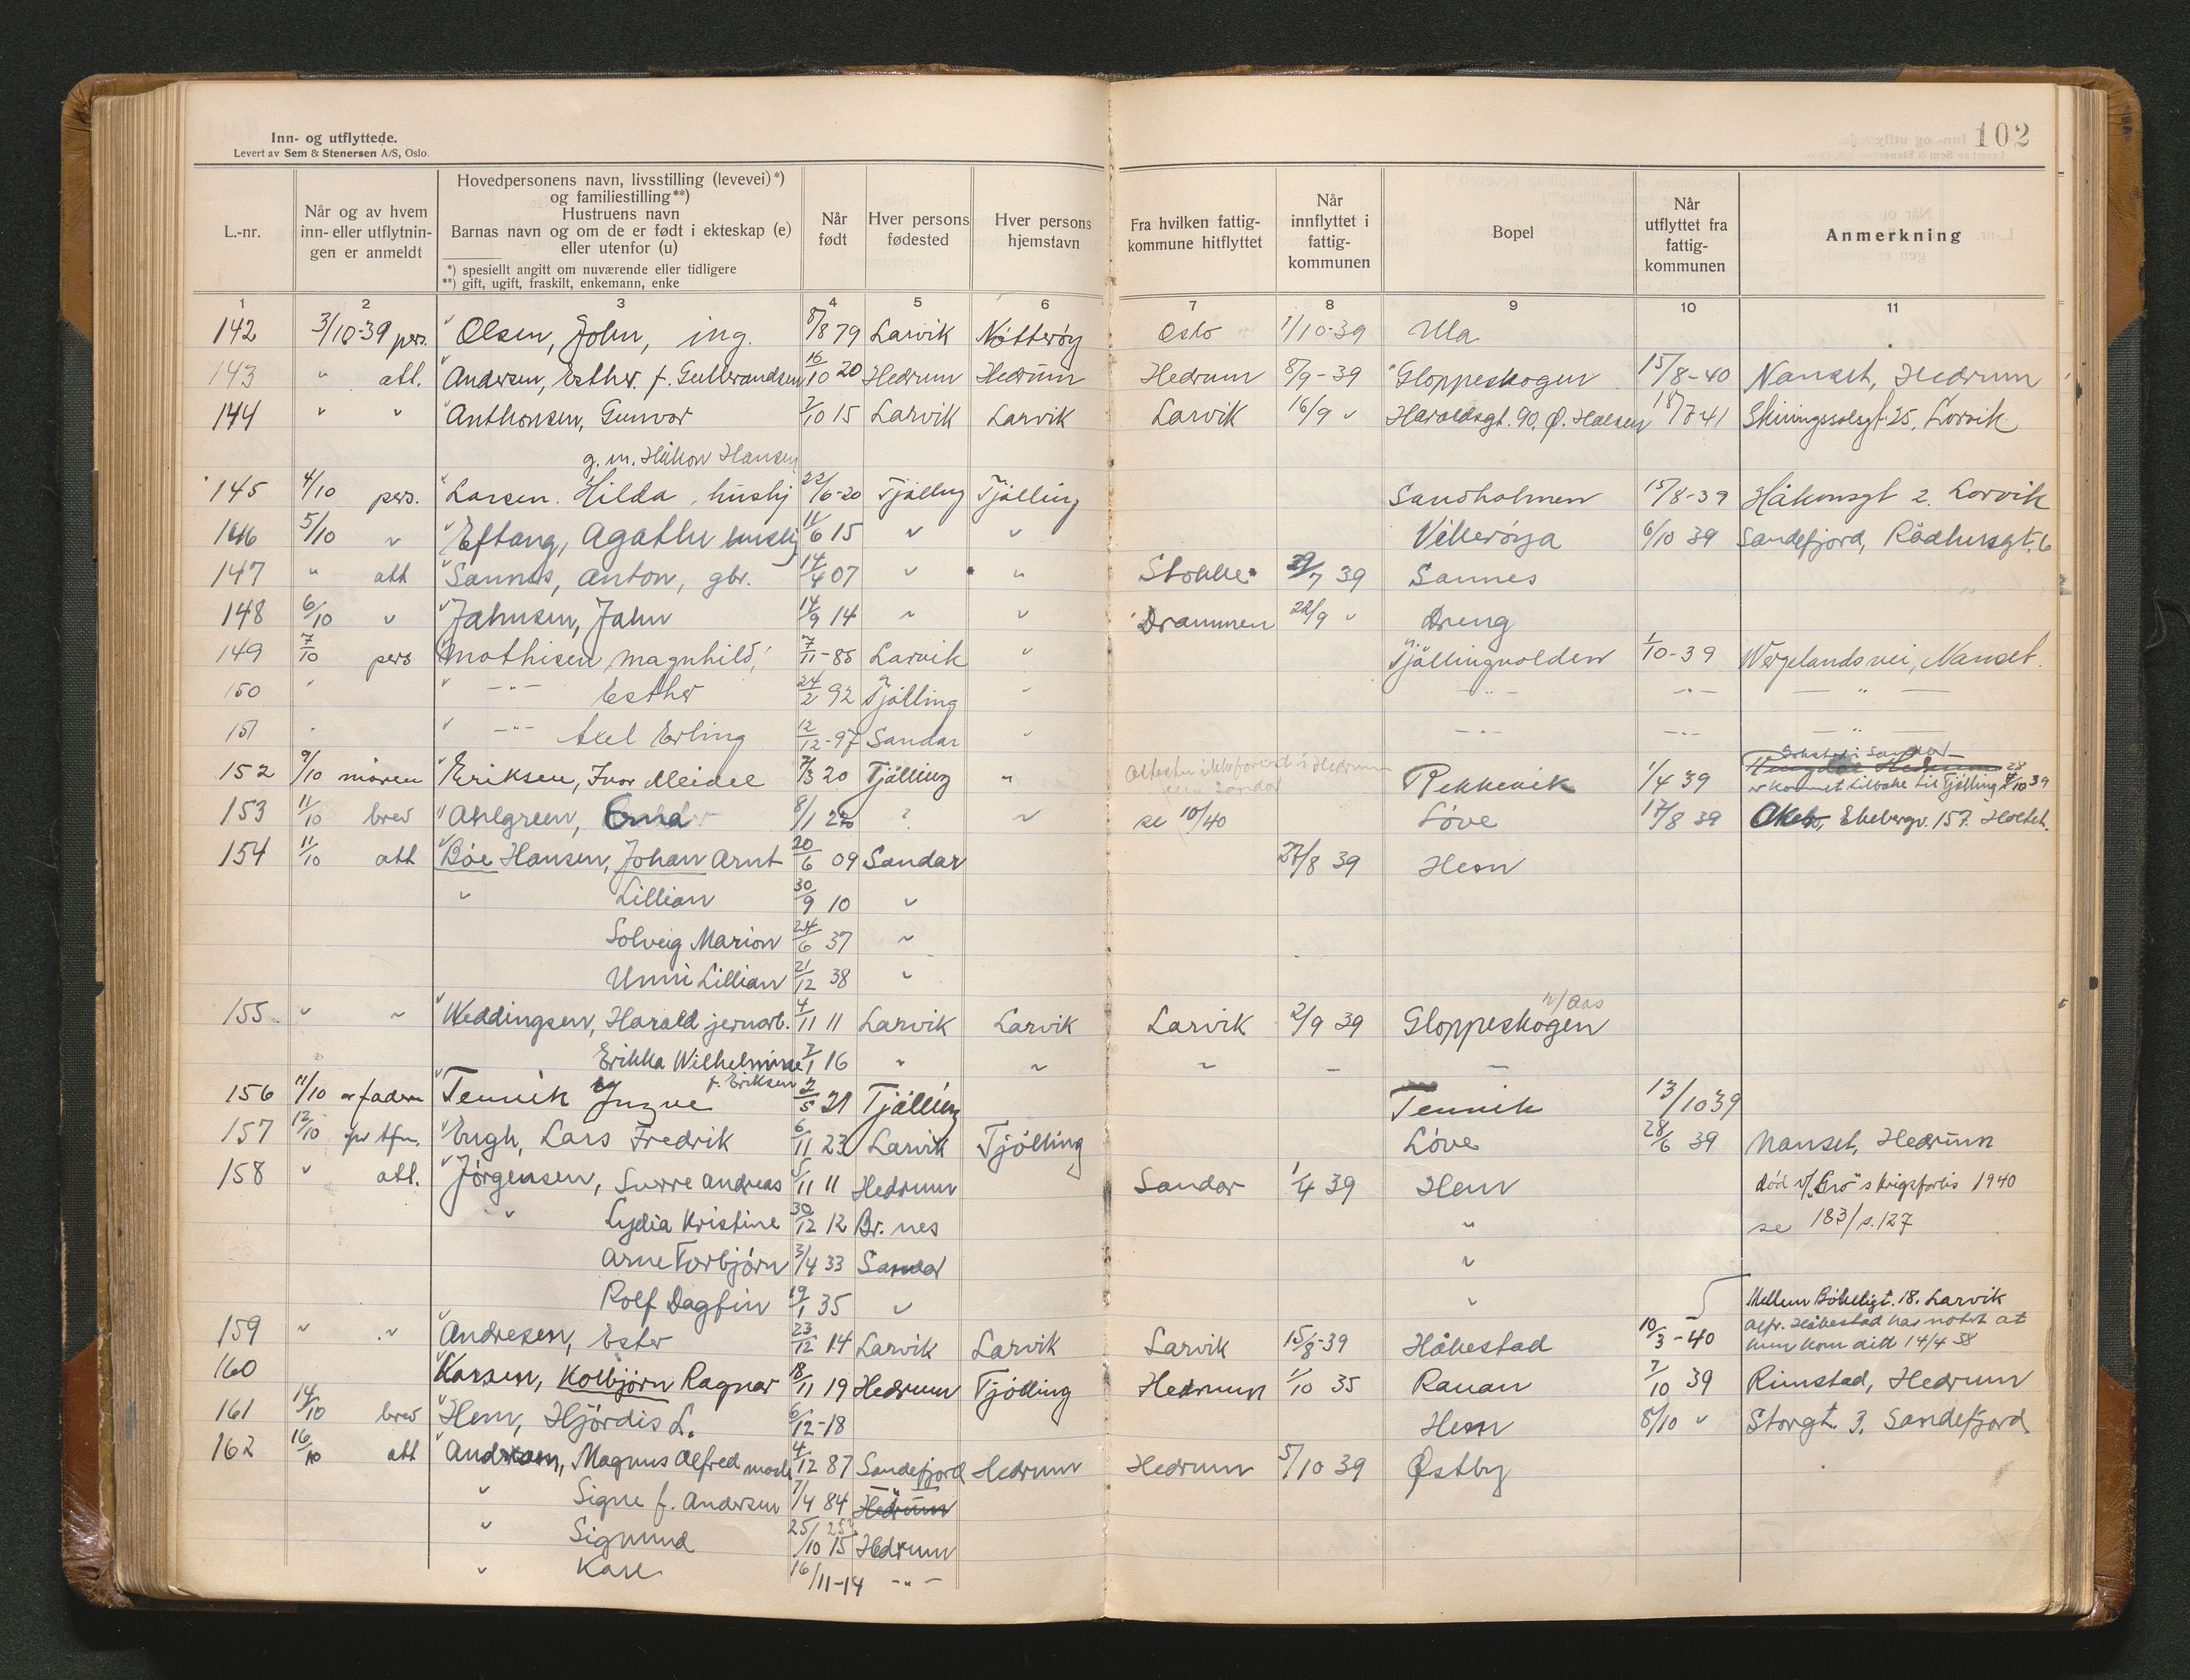 Inn- og utflyttede.
Levert av Sem & Stenersen A/S, Oslo.
102
L.-nr. Når og av hvem inn- eller utflytningen er anmeldt Hovedpersonens navn, livsstilling (levevei)*) og familiestilling**) Hustruens navn Barnas navn og om de er født i ekteskap (e) eller utenfor (u) Når født Hver persons fødested Hver persons hjemstavn Fra hvilken fattigkommune hitflyttet Når innflyttet i fattigkommunen Bopel Når utflyttet fra fattigkommunen Anmerkning
*) spesiellt angitt om nuværende eller tidligere
**) gift, ugift, fraskilt, enkemann, enke
1 2 3 4 5 6 7 8 9 10 11
142 3/10-39 pers. Olsen, John, ing. 8/8 79 Larvik Nøtterøy Oslo 1/10-39 Ula
143 " att. Andersen, Esther f. Gulbrandsen 16/10 20 Hedrum Hedrum Hedrum 8/9-39 Gloppeskogen 15/8-40 Nanset, Hedrum
144 " " Anthonsen, Gunvor 7/10 15 Larvik Larvik Larvik 16/9 " Haraldsgt. 90, Ø. Halsen 18/7 41 Skiringssalsgt. 25, Larvik
g. m. Håkon Hansen
145 4/10 pers. Larsen. Hilda, hushj 22/6-20 Tjølling Tjølling Sandholmen 15/8-39 Håkonsgt 2. Larvik
146 5/10 " Eftang, Agathe hushj 11/6 15 " " Villerøya 6/10 39 Sandefjord, Rådhusgt. 6
147 " att Sannes, Anton, gbr. 14/4 07 " " Stokke 29/7 39 Sannes
148 6/10 " Jahnsen, Jahn 14/9 14 " " Drammen 22/9 " Dreng
149 7/10 pers Mathisen, Magnhild, 7/11-85 Larvik " Tjøllingvolden 1/10-39 Wergelandsvei, Nanset.
150 " " -"- Esther 24/2 92 Tjølling " -"- -"- — " —
151 " " -"- Axel Erling 12/12-97 Sandar " -"- -"- — " —
152 9/10 moren Eriksen, Ivar Meidel 7/3 20 Tjølling " Attesten ikke foreved i Hedrum eller Sandar Rekkevik 1/4 39 Sandar
er kommet tilbake til Tjølling 28/10 39
153 11/10 brev Ahlgreen, Erna 8/1 20 ? " se 10/40 Løve 17/8 39 Oslo, Ekebergv. 157. Holtet.
154 11/10 att Bøe Hansen, Johan Arnt 20/6 09 Sandar 27/8 39 Hem
" Lillian 30/9 10 "
Solveig Marion 24/6 37 "
Unni Lillian 21/12 38 "
155 " " Weddingsen, Harald jernarb. 4/11 11 Larvik Larvik Larvik 2/9 39 Gloppeskogen v/ Aas
Erikka Wilhelmine f. Eriksen 7/1 16 " " " – –
156 11/10 av faderen Tenvik Yngve 2/5 21 Tjølling Tenvik 13/10 39
157 12/10 Engh, Lars Fredrik 6/11 23 Larvik Tjølling Løve 28/6 39 Nanset, Hedrum
158 " att. Jørgensen, Sverre Andreas 5/11 11 Hedrum Sandar 1/4 39 Hem død v/ "Gro"s krigsforlis 1940
" Lydia Kristine 30/12 12 Br.nes " se 183/s.127
Arne Torbjørn 3/4 33 Sandar "
Rolf Dagfin 19/1 35 " "
Mellem Bøkeligt. 18. Larvik
159 " " Andresen, Ester 23/12 14 Larvik Larvik Larvik 15/8-39 Håkestad 10/3-40 Alfr. Håkestad har notert at
hun kom ditt 14/4 38
160 Karsen, Kolbjørn Ragnar 18/11 19 Hedrum Tjølling Hedrum 1/10 35 Rauan 7/10 39 Rimstad, Hedrum
161 14/10 brev Hem, Hjørdis L. 6/12-18 Hem 8/10 " Storgt. 3, Sandefjord
162 16/10 att Andersen, Magnus Alfred mask 4/12 87 Sandefjord Hedrum Hedrum 5/10 39 Østby
" Signe f. Andersen 7/4 84 — " — Hedrum
" Sigmund 25/10 15 Hedrum
" Kåre 16/11-14 -"-